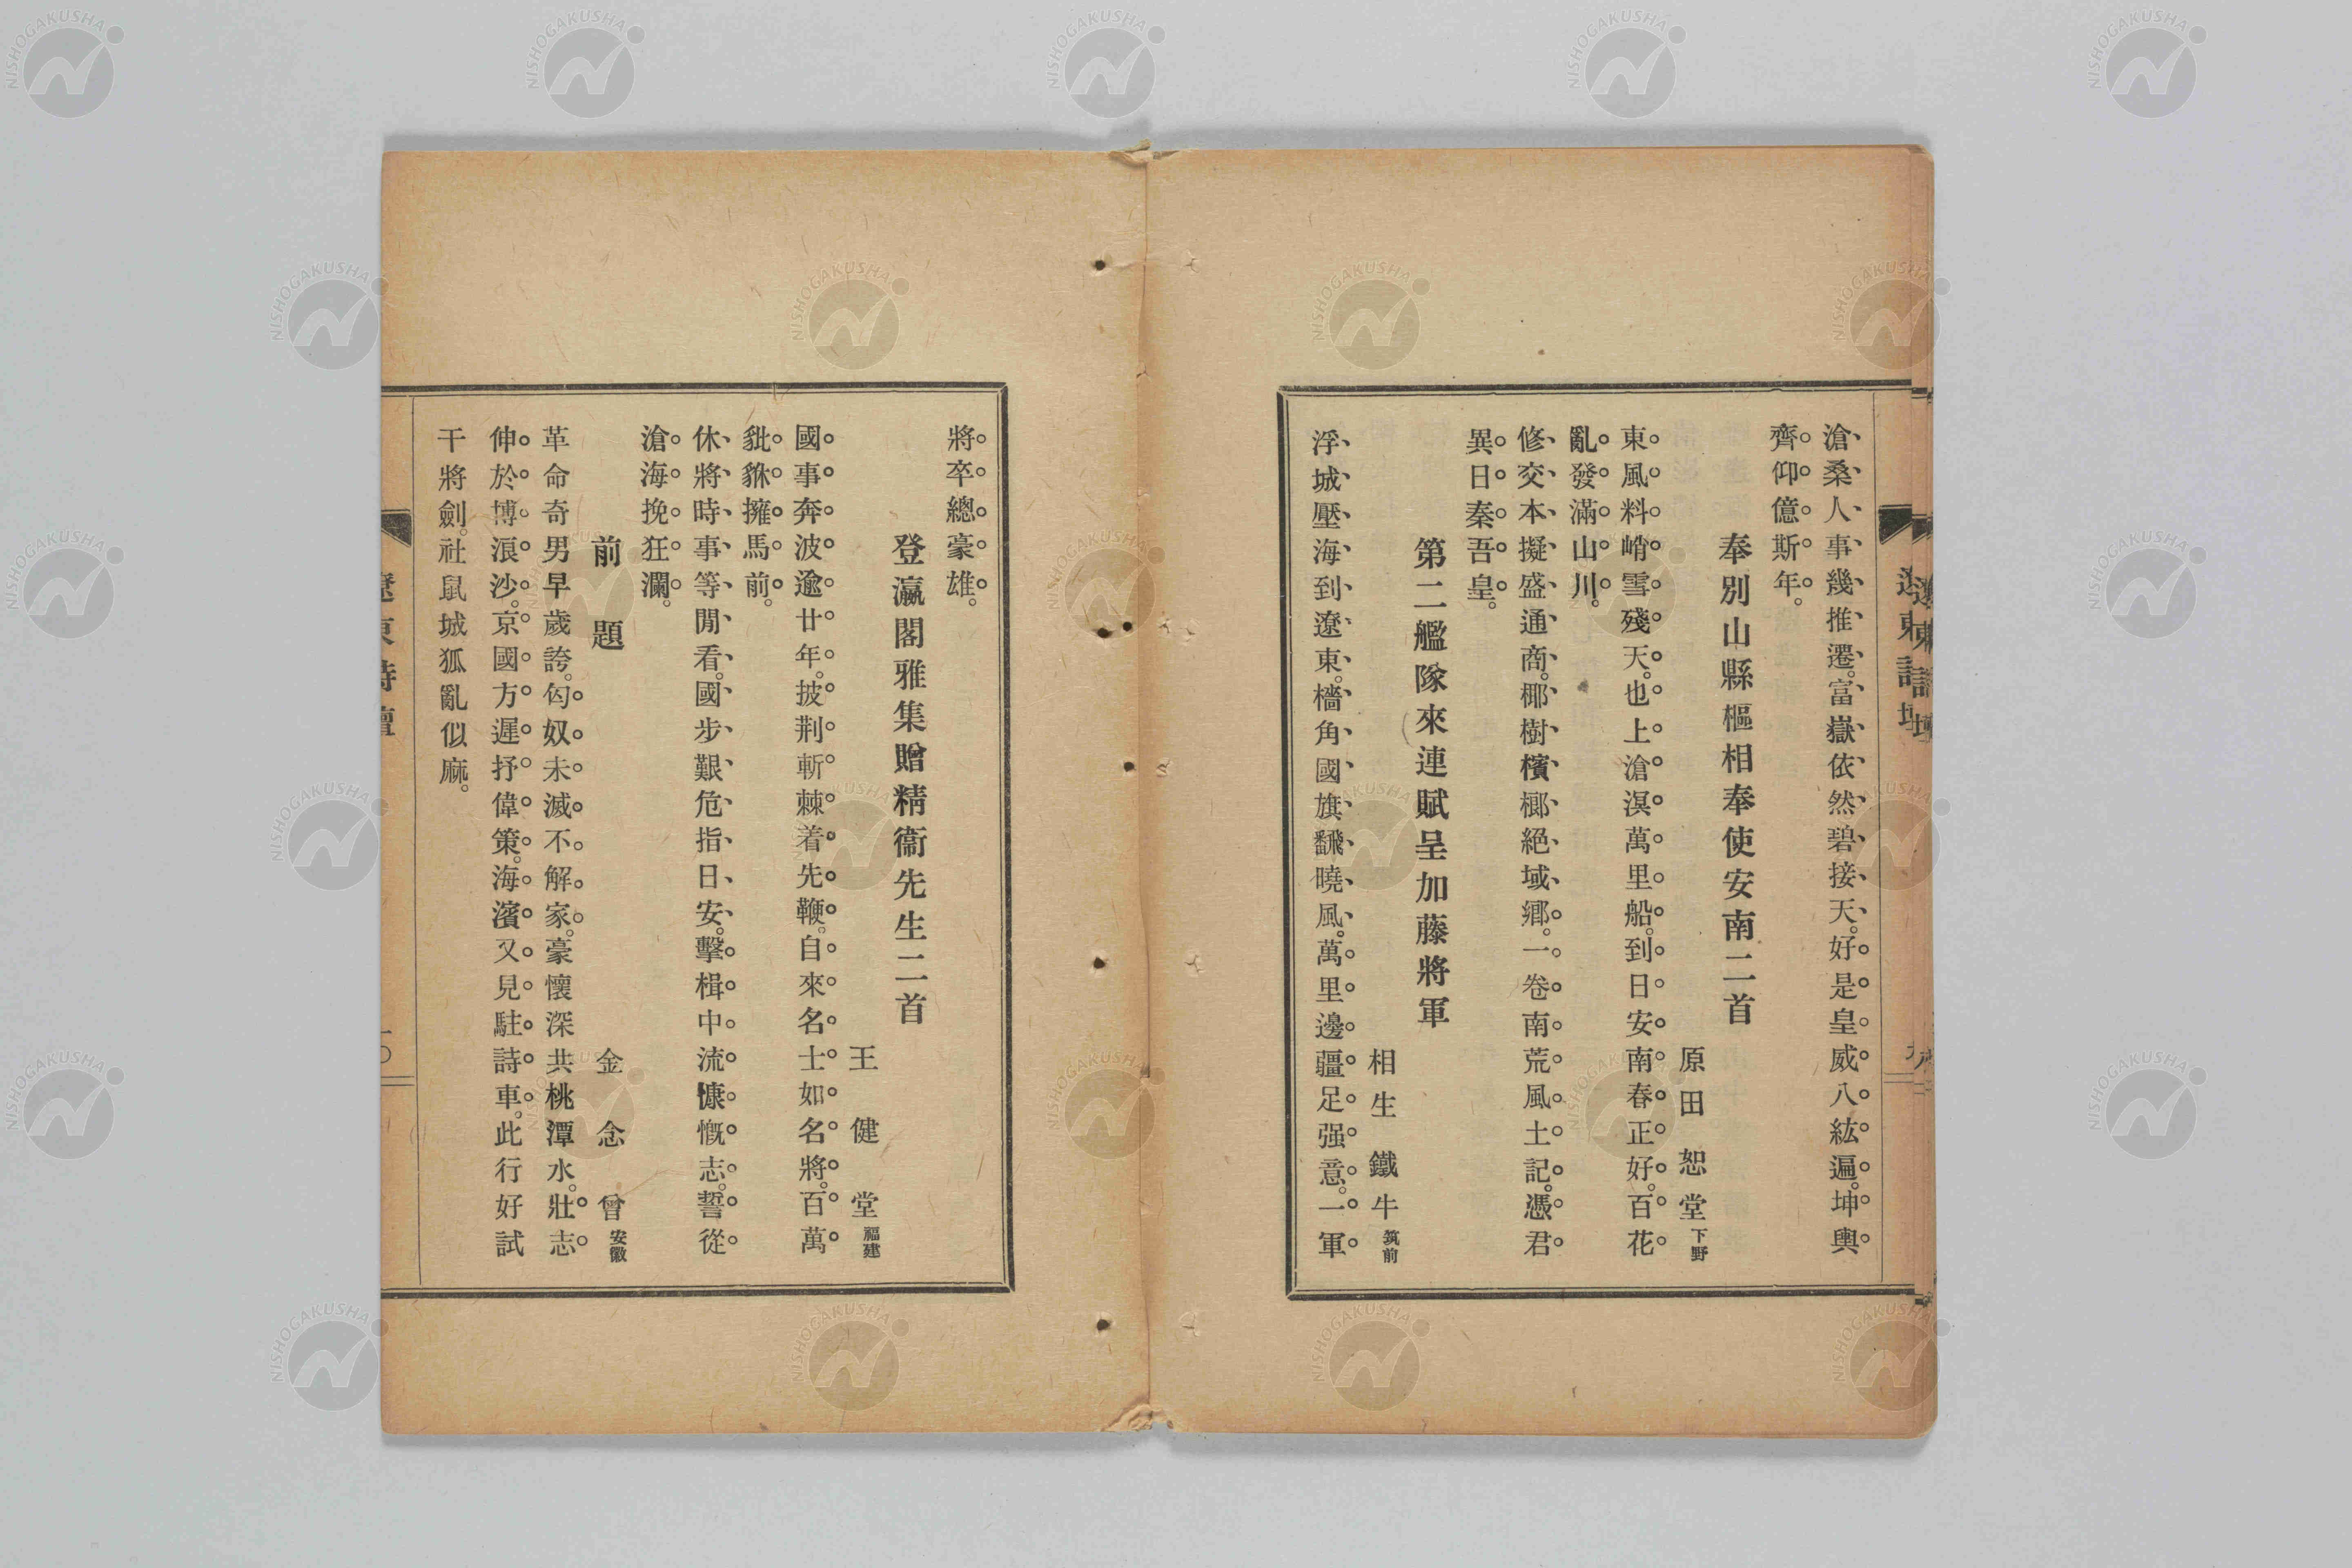 滄桑人事幾推遷。富嶽依然碧接天。好是皇威八紘遍。坤輿
齊仰億斯年。
奉別山縣樞相奉使安南二首
原田恕堂 下野
東風料峭雪殘天。也上滄溟萬里船。到日安南春正好。百花
亂發滿山川。
修交本擬盛通商。椰樹檳榔絕域鄉。一卷南荒風土記。憑君
異日奏吾皇。
第二艦隊來連賦呈加藤將軍
相生鐵牛 筑前
浮城壓海到遼東。檣角國旗飜曉風。萬里邊疆足强意。一軍
將卒總豪雄。
登瀛閣雅集贈精衞先生二首
王健堂 福建
國事奔波逾廿年。披荆斬棘着先鞭。自來名士如名將。百萬
貔貅擁馬前。
休將時事等閒看。國步艱危指日安。擊楫中流慷慨志。誓從
滄海挽狂瀾。
前題
金念曾 安徽
革命奇男早歲誇。匈奴未滅不解家。豪懷深共桃潭水。壯志
伸於博浪沙。京國方遲抒偉策。海濱又見駐詩車。此行好試
干將劍。社鼠城狐亂似麻。
遼東詩壇
一〇
NISHOGAKUSHA